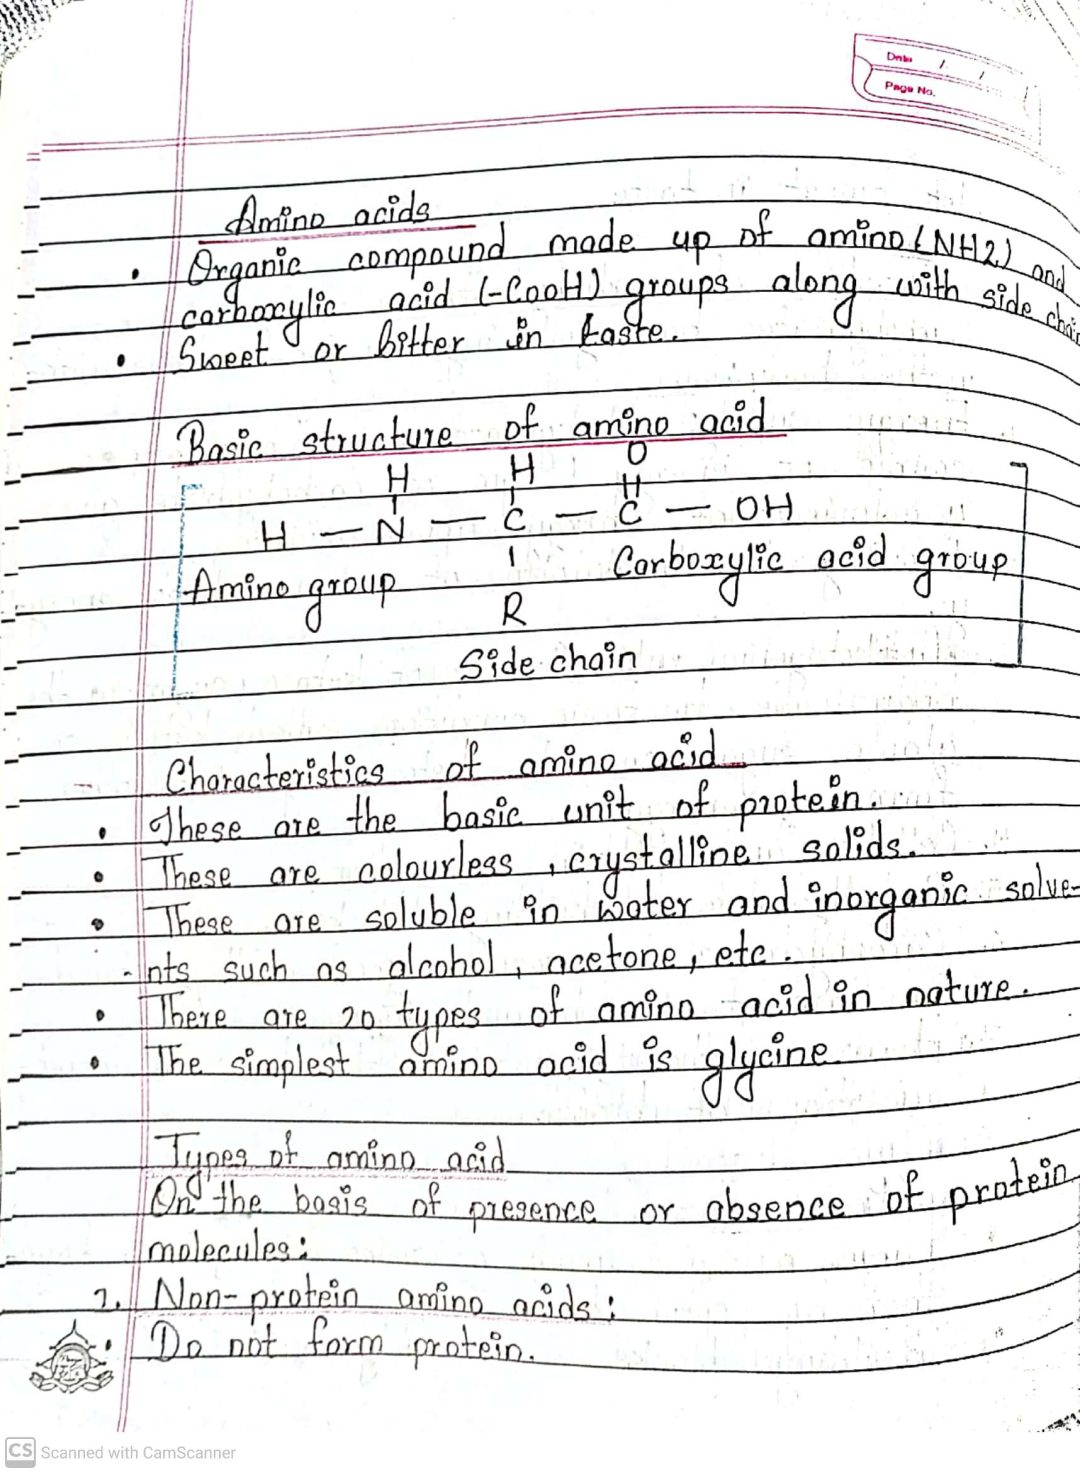 Date / /
Page No.
Amino acids
• Organic compound made up of amino (NH2) and
carboxylic acid (-COOH) groups along with side chain
• Sweet or bitter in taste.
Basic structure of amino acid
H H O
H - N - C - C - OH
Amino group Carboxylic acid group
R
Side chain
Characteristics of amino acid
• These are the basic unit of protein.
• These are colourless, crystalline solids.
• These are soluble in water and inorganic solve-
-nts such as alcohol, acetone, etc.
• There are 20 types of amino acid in nature.
• The simplest amino acid is glycine
Types of amino acid
On the basis of presence or absence of protein
molecules:
1. Non-protein amino acids:
• Do not form protein.
CS Scanned with CamScanner